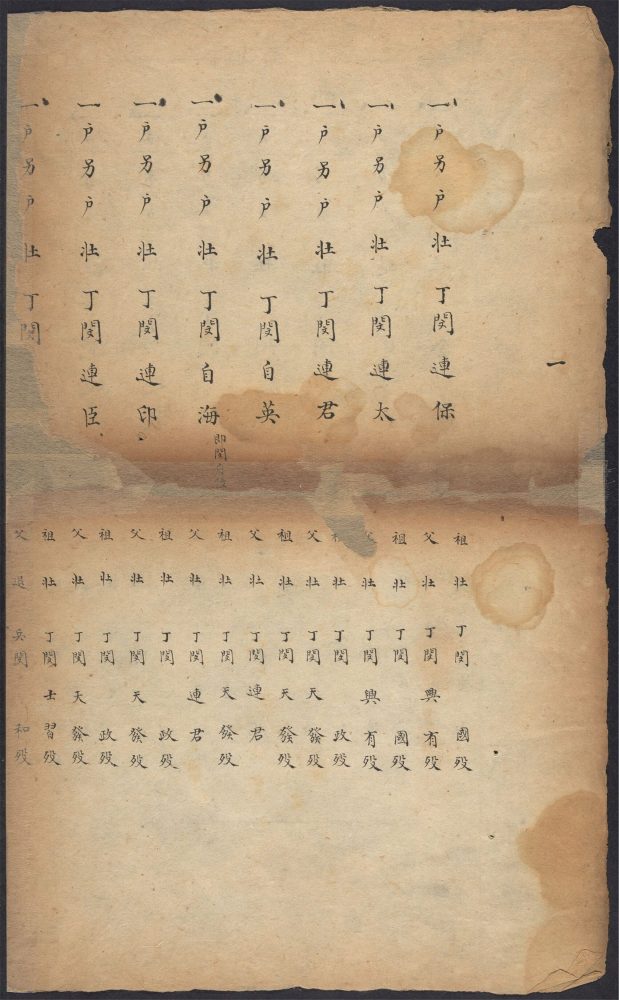 一
一户另户壯丁閔連保
祖壯丁閔國歿
父壯丁閔興有歿
一户另户壯丁閔連太
祖壯丁閔國歿
父壯丁閔興有歿
一户另户壯丁閔連君
祖壯丁閔政歿
父壯丁閔天發歿
一户另户壯丁閔自英
祖壯丁閔天發歿
父壯丁閔連君
一户另户壯丁閔自海
即閔自
祖壯丁閔天發歿
父壯丁閔連君
一户另户壯丁閔連印
祖壯丁閔政歿
父壯丁閔天發歿
一户另户壯丁閔連臣
祖壯丁閔政歿
父壯丁閔天發歿
一户另户壯丁閔
祖壯丁閔士習歿
父退兵閔和歿